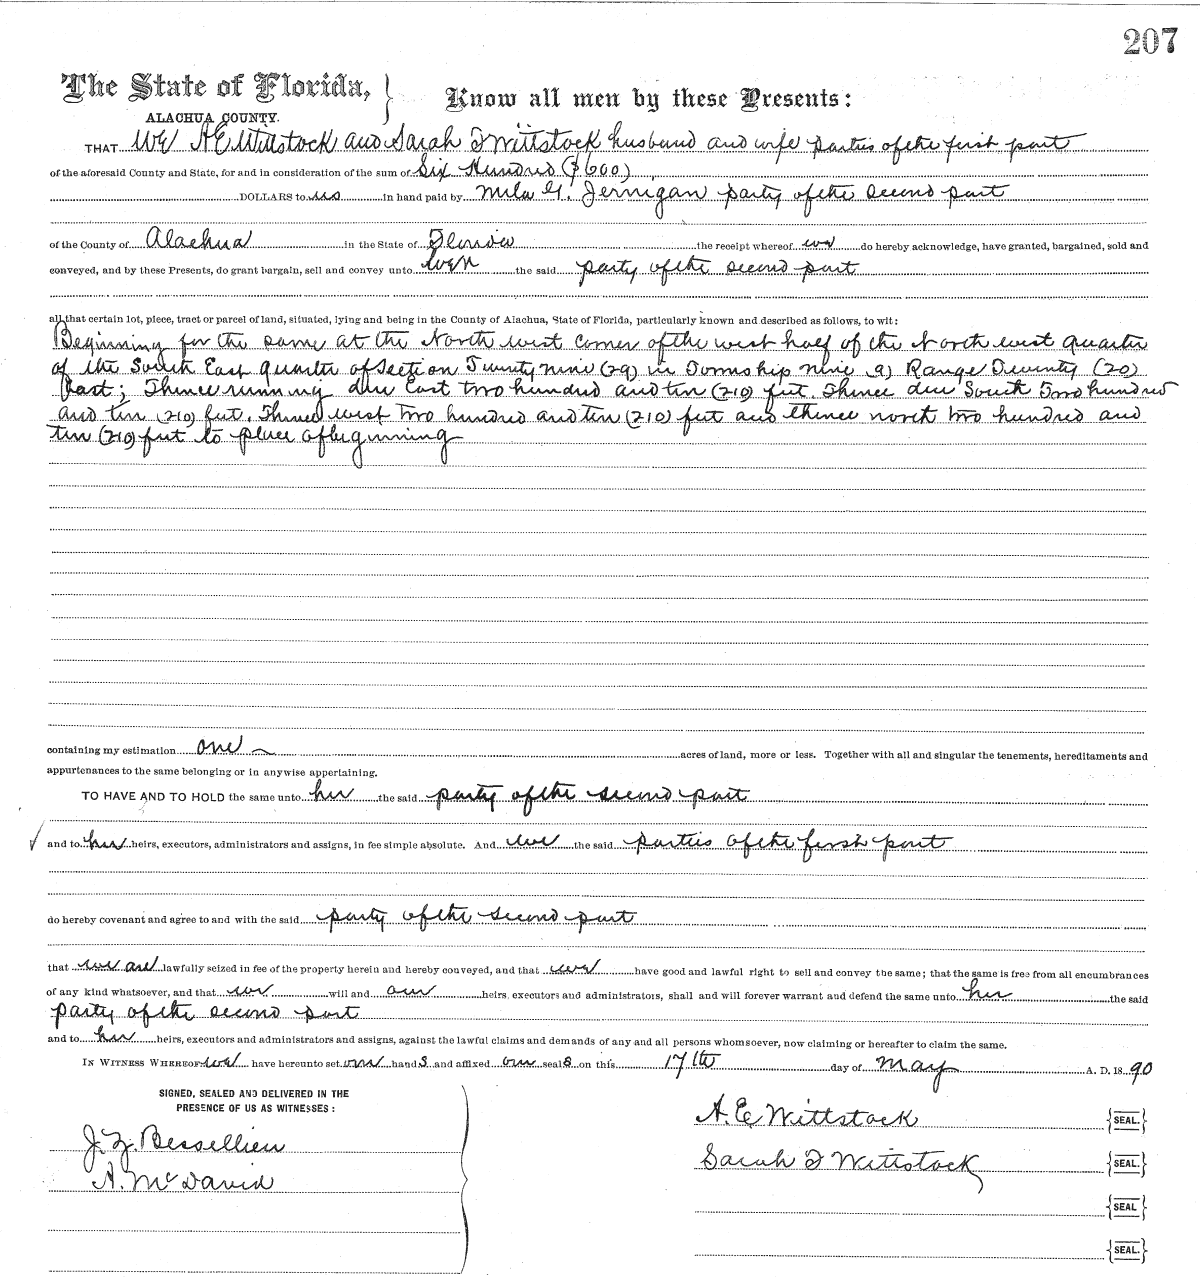 207
The State of Florida, } Know all men by these Presents:
ALACHUA COUNTY.
THAT We A E Wittstock and Sarah T Wittstock husband and wife parties of the first part
of the aforesaid County and State, for and in consideration of the sum of Six Hundred ($600)
DOLLARS to us in hand paid by G. Jernigan party of the second part
of the County of Alachua in the State of Florida the receipt whereof we do hereby acknowledge, have granted, bargained, sold and
conveyed, and by these Presents, do grant bargain, sell and convey unto the said party of the second part
all that certain lot, piece, tract or parcel of land, situated, lying and being in the County of Alachua, State of Florida, particularly known and described as follows, to wit:
Beginning for the same at the North west corner of the west half of the North west quarter
of the South East quarter of Section Twenty nine (29) in Township nine 9) Range Twenty (20)
East; Thence running due East two hundred and ten (210) feet. Thence due South Two hundred
and ten (210) feet. Thence west two hundred and ten (210) feet and thence north two hundred and
ten (210) feet to place of beginning
containing my estimation one acres of land, more or less. Together with all and singular the tenements, hereditaments and
appurtenances to the same belonging or in anywise appertaining.
TO HAVE AND TO HOLD the same unto her the said party of the second part
and to her heirs, executors, administrators and assigns, in fee simple absolute. And we the said parties of the first part
do hereby covenant and agree to and with the said party of the second part
that we are lawfully seized in fee of the property herein and hereby conveyed, and that we have good and lawful right to sell and convey the same; that the same is free from all encumbrances
of any kind whatsoever, and that we will and our heirs, executors and administrators, shall and will forever warrant and defend the same unto her the said
party of the second part
and to her heirs, executors and administrators and assigns, against the lawful claims and demands of any and all persons whomsoever, now claiming or hereafter to claim the same.
IN WITNESS WHEREOF we have hereunto set our hands and affixed our seals on this 17th day of May A. D. 1890
SIGNED, SEALED AND DELIVERED IN THE
PRESENCE OF US AS WITNESSES:
A. E. Wittstock {SEAL.}
J. Z. Bessellieu
Sarah T Wittstock {SEAL.}
A. McDavid
{SEAL}
{SEAL.}